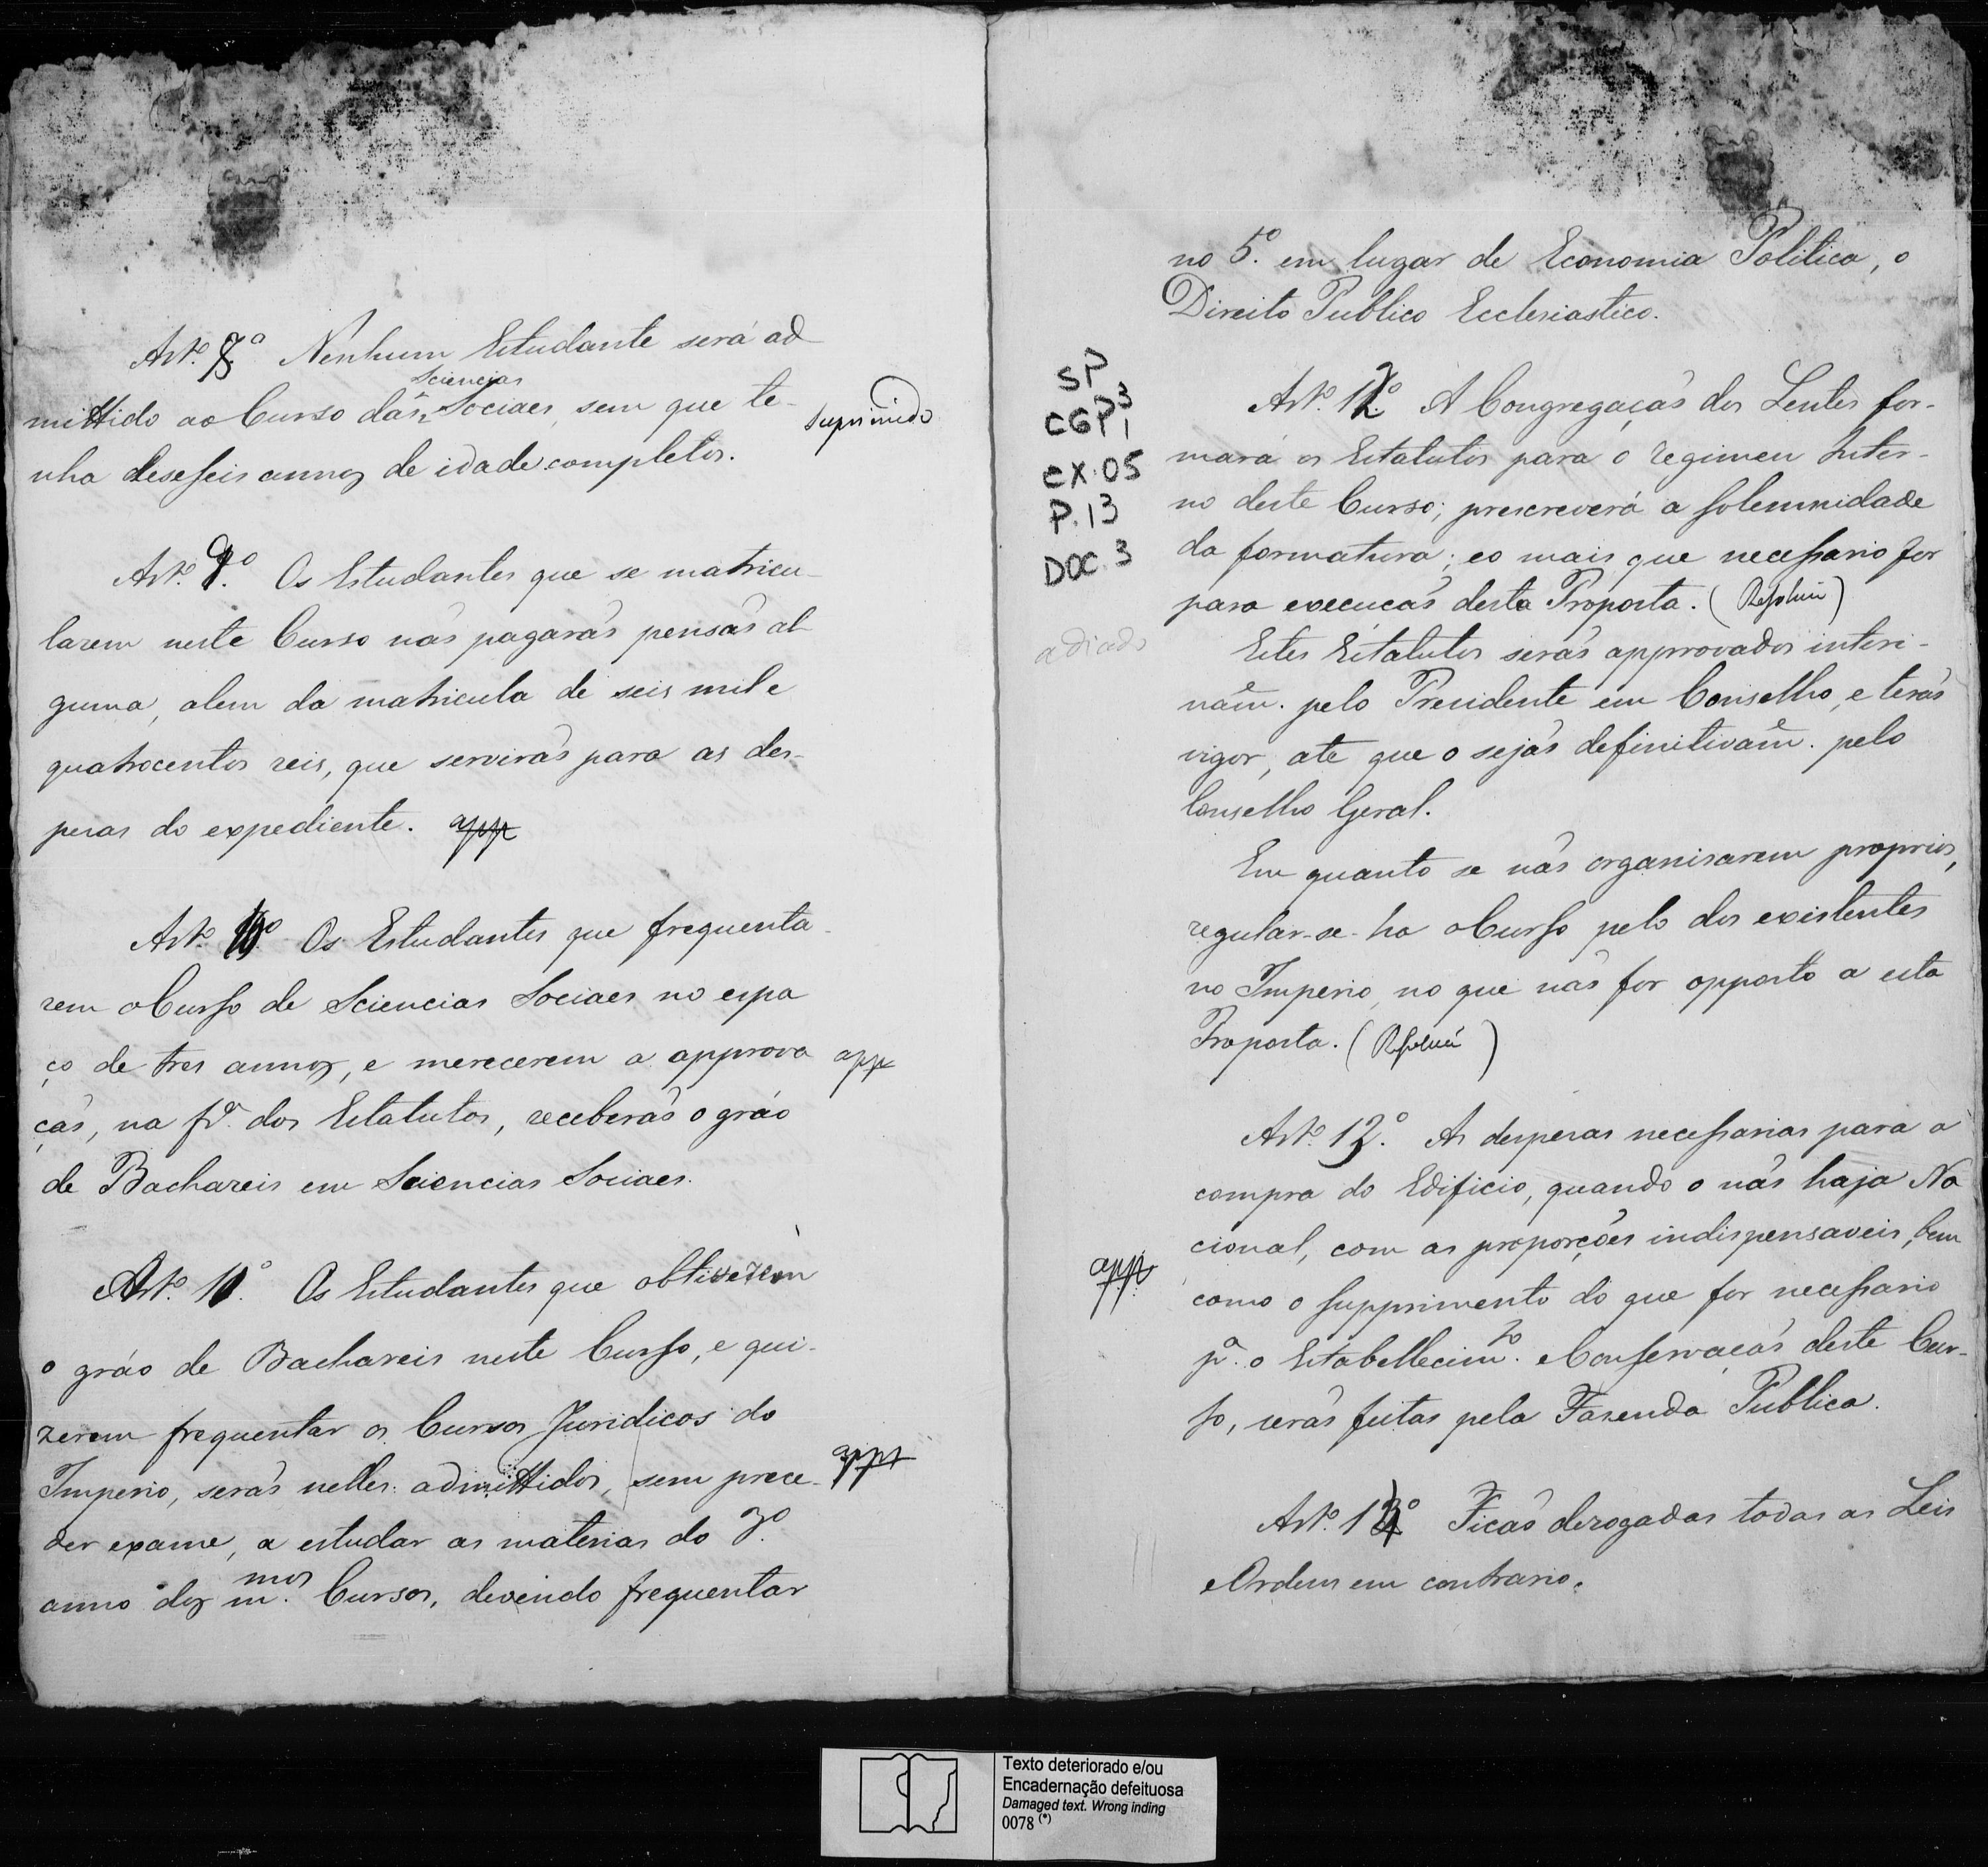 Art.º 8.º Nenhum Estudante será ad-
mittido ao Curso das Sciencias Sociaes, sem que te-
nha deseseis annos de idade completos.
Suprimido
Art.º 9.º Os Estudantes que se matricu-
larem neste Curso não pagarão pensão al-
guma, alem da matricula de seis mil e
quatrocentos reis, que servirão para as des-
pesas do expediente. app
Art.º 10.º Os Estudantes que frequenta-
rem o Curso de Sciencias Sociaes no espa
ço de tres annos, e merecerem a approva
app
ção, na fr.ª dos Estatutos, receberão o gráo
de Bachareis em Sciencias Sociaes.
Art.º 11.º Os Estudantes que obtiverem
o gráo de Bachareis neste Curso, e qui-
zerem frequentar os Cursos Juridicos do
Imperio, serão nelles admittidos, sem prece-
app
der exame, a estudar as materias do 3.º
anno dos m.mos Cursos, devendo frequentar
no 5.º em lugar de Economia Politica, o
Direito Publico Ecclesiastico.
SP
CGP1 3
CX.05
P.13
DOC.3
Art.º 12.º A Congregação dos Lentes for-
mará os Estatutos para o regimen Inter-
no deste Curso; prescreverá a solemnidade
da formatura; e o mais que necessario for
para execução desta Proposta. (
adiado
Estes Estatutos serão approvados interi-
nam.e pelo Presidente em Conselho, e terão
vigor, até que o sejão definitivam.e pelo
Conselho Geral.
Em quanto se não organisarem proprios,
regular-se-ha o Curso pelo dos existentes
no Imperio, no que não for opposto a esta
Proposta. (
Art.º 13.º As despesas necessarias para a
compra do Edificio, quando o não haja Na
cional, com as proporções indispensaveis, bem
app
como o supprimento do que for necessario
p.ª o Estabellecim.to e Conservação deste Cur-
so, serão feitas pela Fazenda Publica.
Art.º 14.º Ficão derogadas todas as Leis
e Ordens em contrario.
Texto deteriorado e/ou
Encadernação defeituosa
Damaged text. Wrong inding
0078 (*)